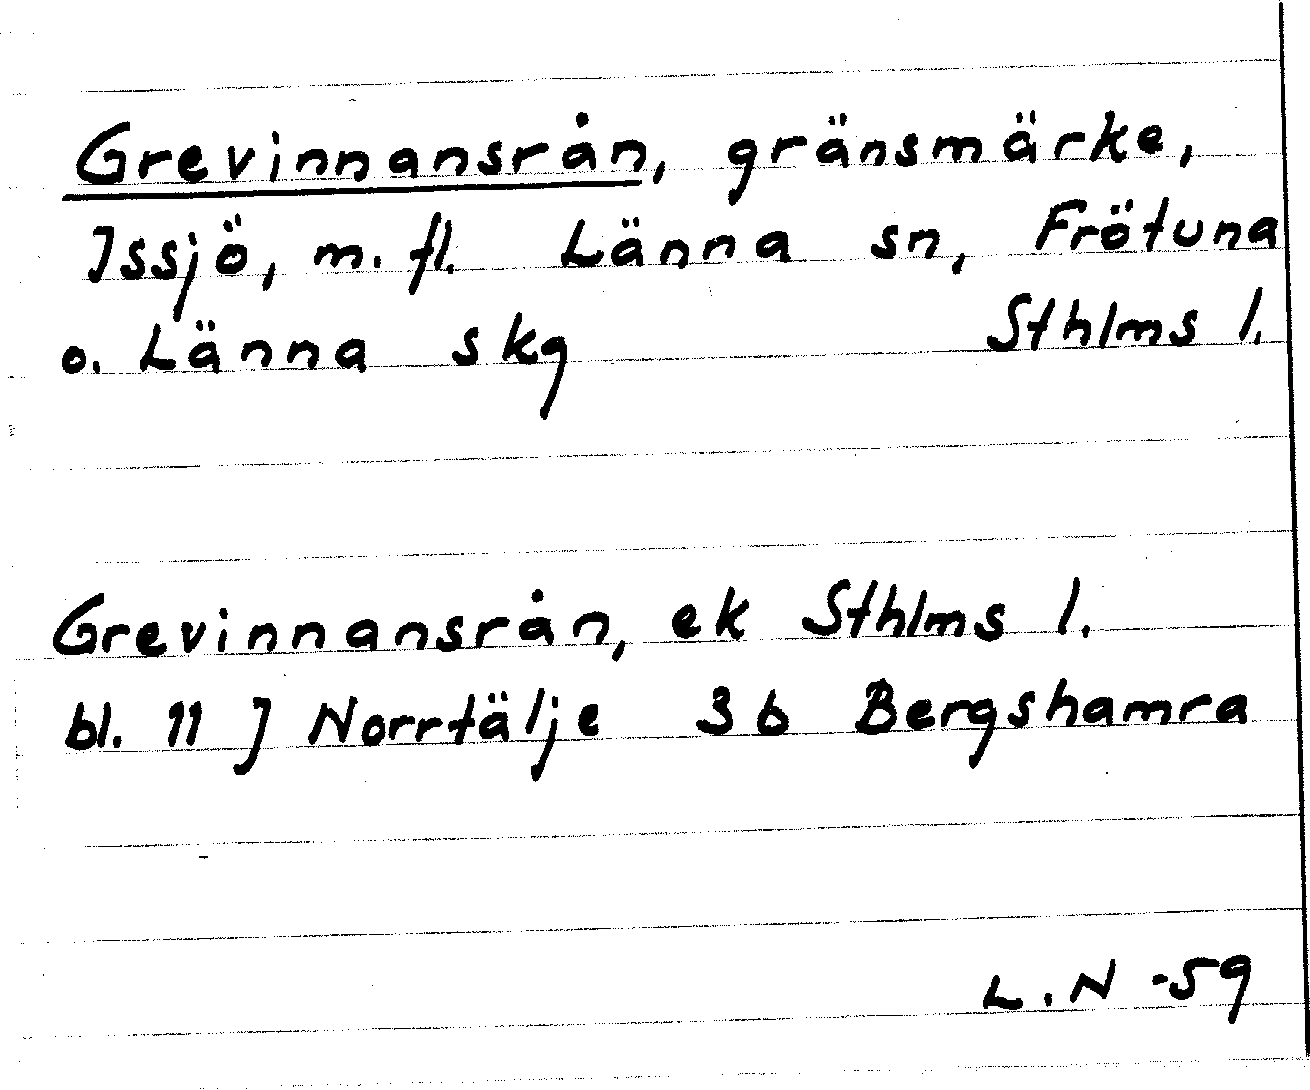 Grevinnansrån, gränsmärke,
Issjö, m. fl. Länna sn, Frötuna
o. Länna skg Sthlms l.
Grevinnansrån, ek Sthlms l.
bl. 11 J Norrtälje 3b Bergshamra
L. N -59